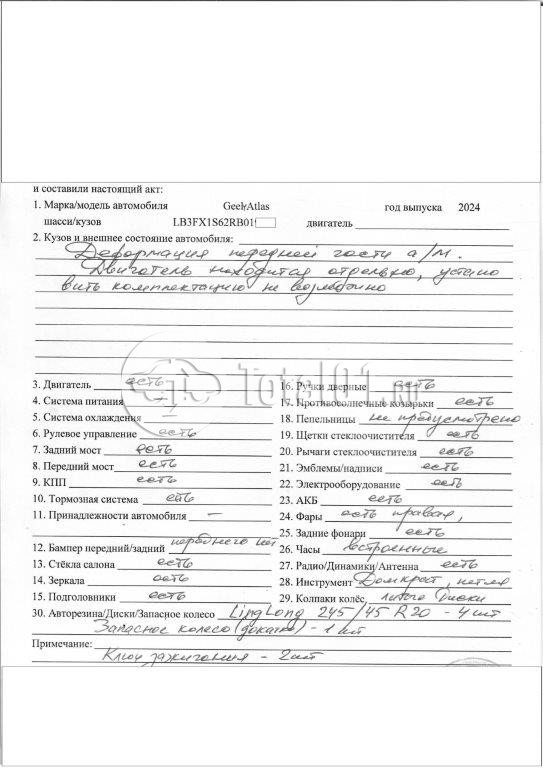 и составили настоящий акт:
1. Марка/модель автомобиля Geely Atlas год выпуска 2024
шасси/кузов LB3FX1S62RB01 двигатель
2. Кузов и внешнее состояние автомобиля:
Деформация передней части а/м.
Двигатель находится отдельно, устано
вить комплектацию не возможно
3. Двигатель есть
4. Система питания —
5. Система охлаждения —
6. Рулевое управление есть
7. Задний мост есть
8. Передний мост есть
9. КПП есть
10. Тормозная система есть
11. Принадлежности автомобиля —
12. Бампер передний/задний переднего нет
13. Стёкла салона есть
14. Зеркала есть
15. Подголовники есть
16. Ручки дверные есть
17. Противосолнечные козырьки есть
18. Пепельницы не предусмотрено
19. Щетки стеклоочистителя есть
20. Рычаги стеклоочистителя есть
21. Эмблемы/надписи есть
22. Электрооборудование есть
23. АКБ есть
24. Фары есть правая,
25. Задние фонари есть
26. Часы встроенные
27. Радио/Динамики/Антенна есть
28. Инструмент Домкрат, петля
29. Колпаки колёс литые диски
30. Авторезина/Диски/Запасное колесо LingLong 245/45 R20 - 4 шт
Запасное колесо (докатка) - 1 шт
Примечание:
Ключ зажигания - 2шт
Total01.ru